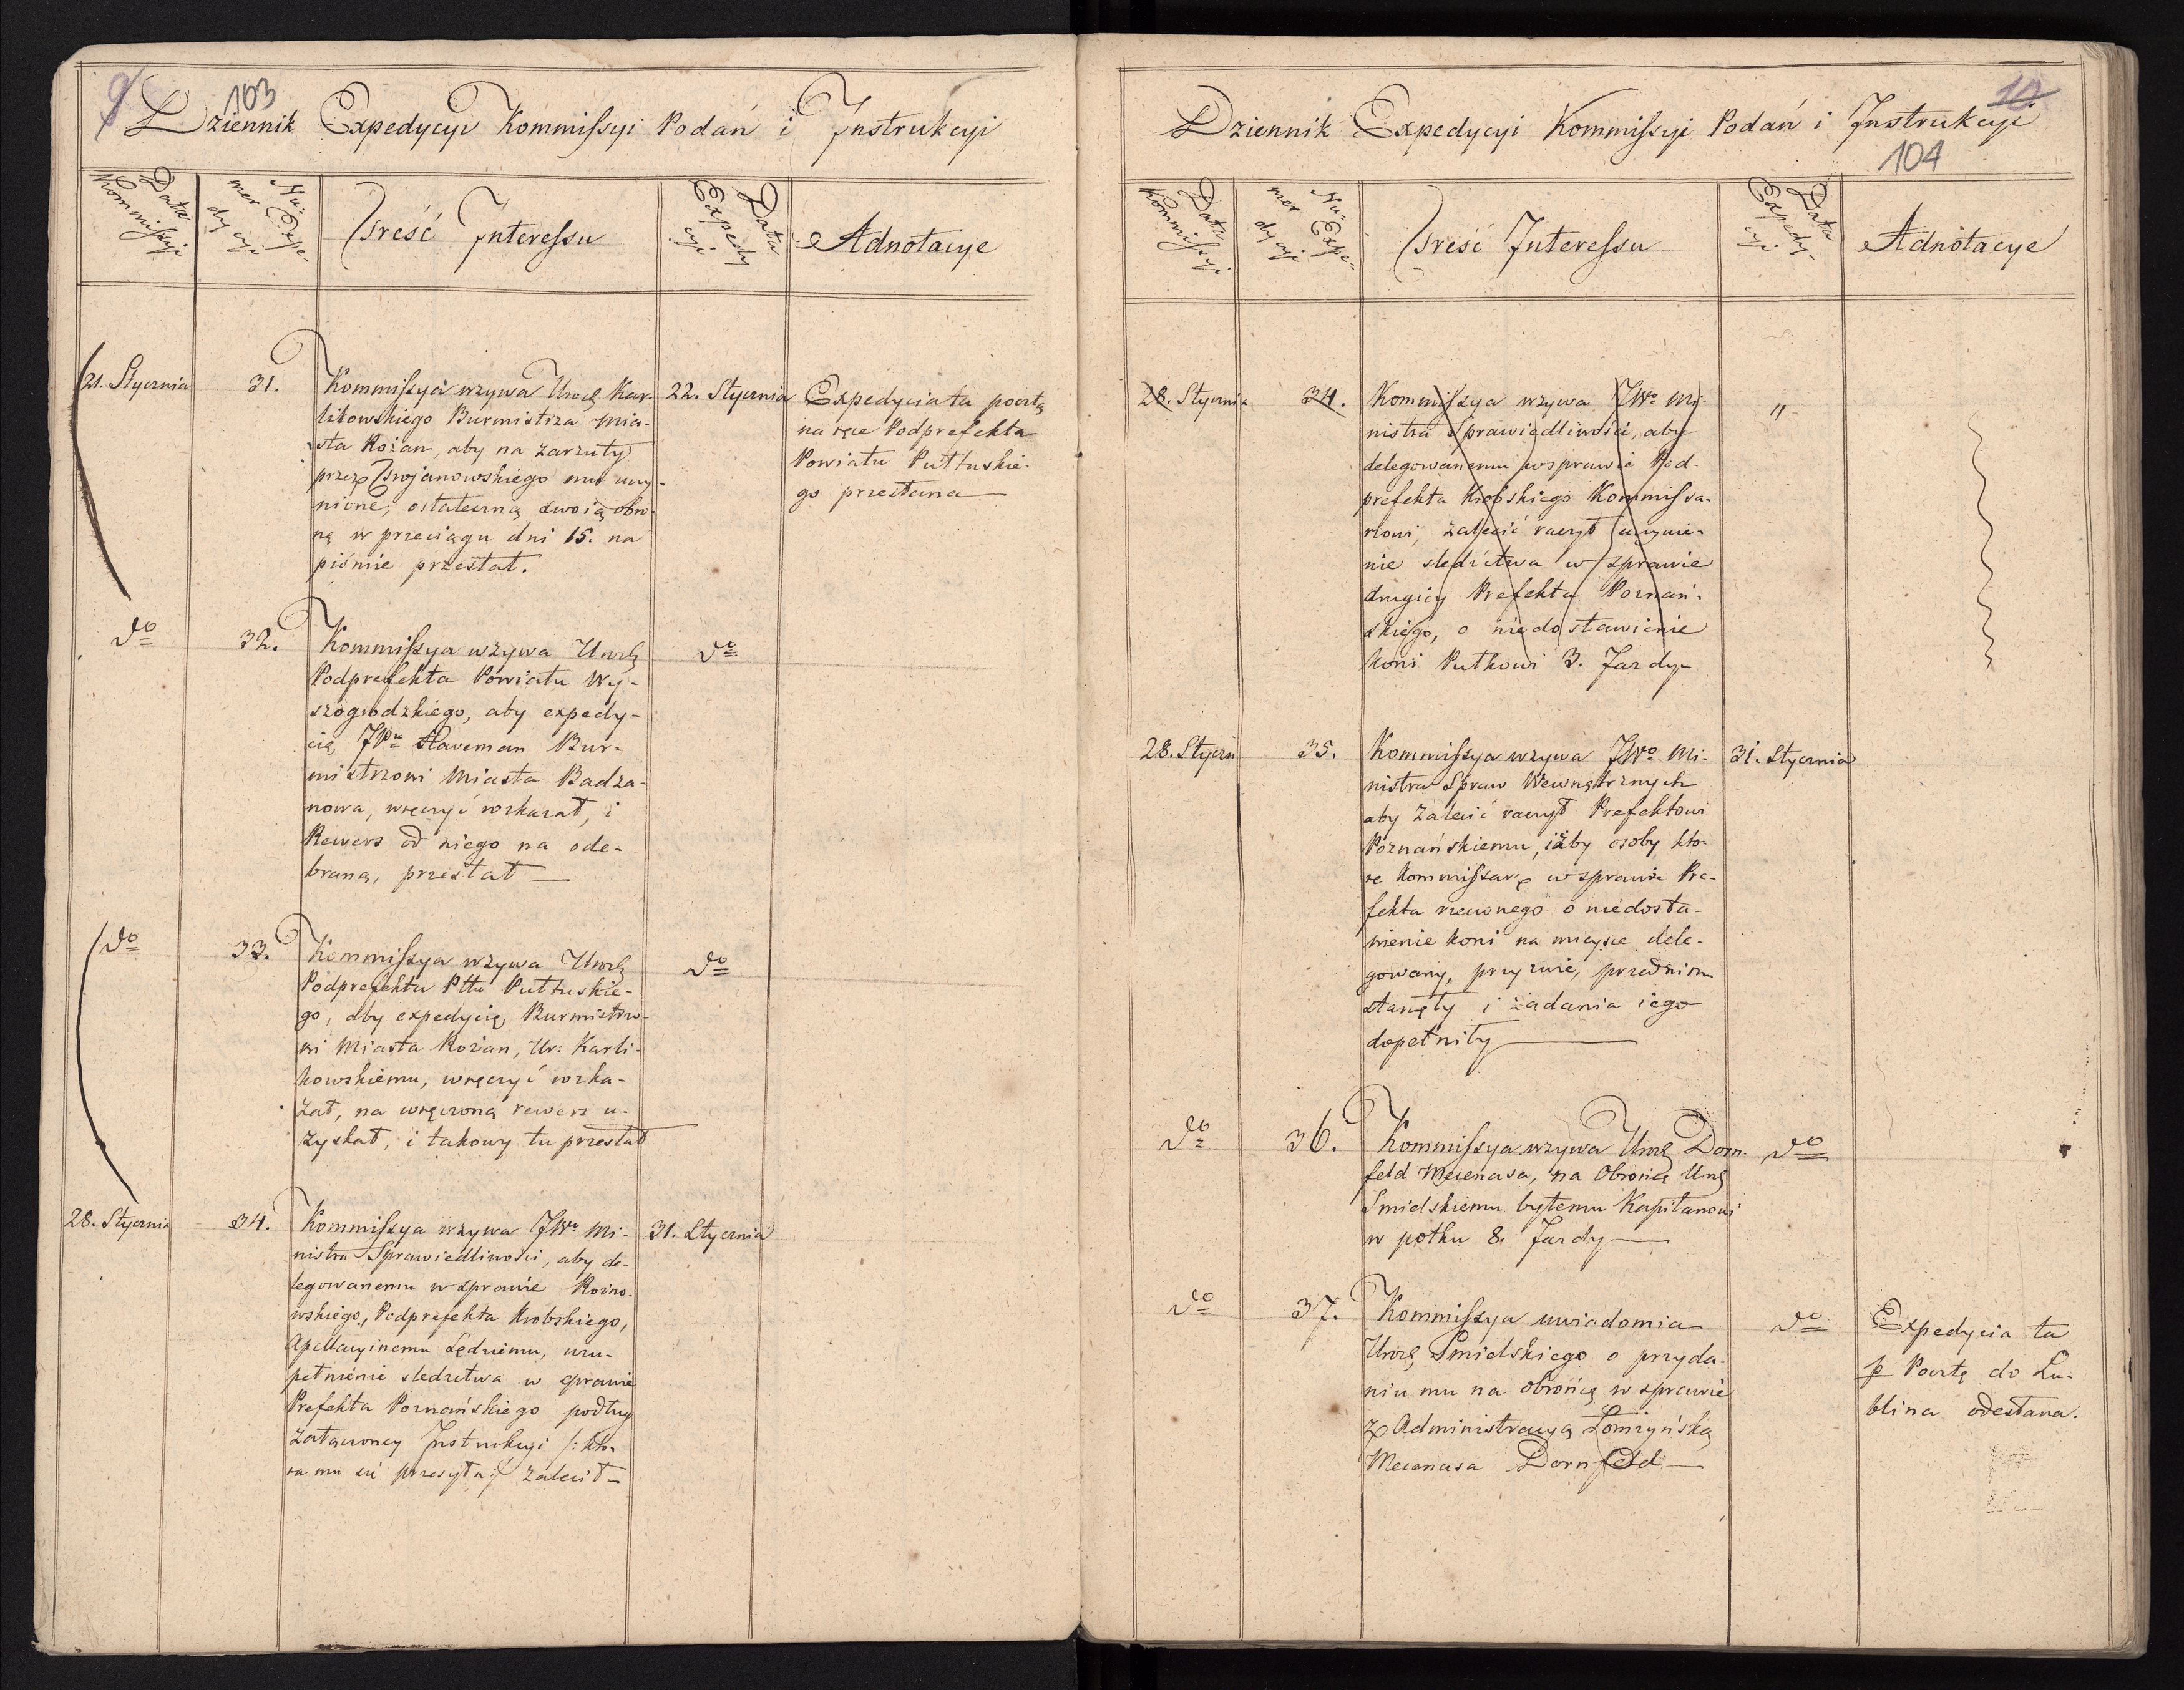 9
103
Dziennik Expedycyi Kommissyi Podań i Instrukcyi
Data Kommissyi
Nu=mer Expe=dycyi
Treść Interessu
Data Expedycyi
Adnotacye
21. Stycznia
31.
Kommissya wzywa Urodz Kar-
likowskiego Burmistrza Mia-
sta Rożan, aby na zarzuty
przez Trojanowskiego mu uczy-
nione, ostateczną swoią obro-
nę w przeciągu dni 15. na
piśmie przesłał.
22. Stycznia
Expedycia ta pocztą
na ręce Podprefekta
Powiatu Pułtuskie-
go przesłana
do
32.
Kommissya wzywa Urodz
Podprefekta Powiatu Wy-
szogrodzkiego, aby expedy-
cię, JPu Haweman Bur-
mistrzowi Miasta Badza-
nowa, wręczyć rozkazał, i
Rewers od niego na ode-
braną, przesłał
do
do
33.
Kommissya wzywa Urodz
Podprefekta Pttu Pułtuskie-
go, aby expedycię, Burmistrzo-
wi Miasta Rożan, Ur: Karli-
kowskiemu, wręczyć rozka-
zał, na wręczoną rewers u-
zyskał, i takowy tu przesłał
do
28. Stycznia
34.
Kommissya wzywa JWo Mi-
nistra Sprawiedliwości, aby de-
legowanemu w sprawie Rozno-
wskiego, Podprefekta Krobskiego,
Apellacyinemu Sędziemu, uzu-
pełnienie sledztwa w sprawie
Prefekta Poznańskiego podług
załączoney Instrukcyi /: któ-
ra mu się przesyła :/ zalecił
31. Stycznia
10
Dziennik Expedycyi Kommissyi Podań i Instrukcyi
104
Data Kommissyi
Nu=mer Expe=dycyi
Treść Interessu
Data Expedy-cyi
Adnotacye
28. Stycznia
34.
Kommissya wzywa JWo Mi-
nistra Sprawiedliwości, aby
delegowanemu w sprawie Pod-
prefekta Krobskiego Kommissa-
rzowi, zalecić raczył uczynie-
nie sledztwa w sprawie
drugiey Prefekta Poznań-
skiego, o niedostawienie
koni Pułkowi 3. Jazdy
"
28. Styczn
35.
Kommissya wzywa JWo Mi-
nistra Spraw Wewnętrznych
aby zalecić raczył Prefektowi
Poznańskiemu, iżby osoby któ-
re Kommissarz w sprawie Pre-
fekta rzeczonego o niedosta-
wienie koni na mieysce dele-
gowany, przyzwie, przed nim
stanęły i żadania iego
dopełniły
31. Stycznia
do
36.
Kommissya wzywa Urodz Dorn-
feld Mecenasa, na Obrońcę Urodz
Smielskiemu byłemu Kapitanowi
w półku 8. Jazdy
do
do
37.
Kommissya uwiadomia
Urodz Smielskiego o przyda-
niu mu na obrońcę w sprawie
z Administracyą Łomżyńską
Mecenasa Dornfeld
do
Expedycia ta
p Pocztę do Lu-
blina odesłana.